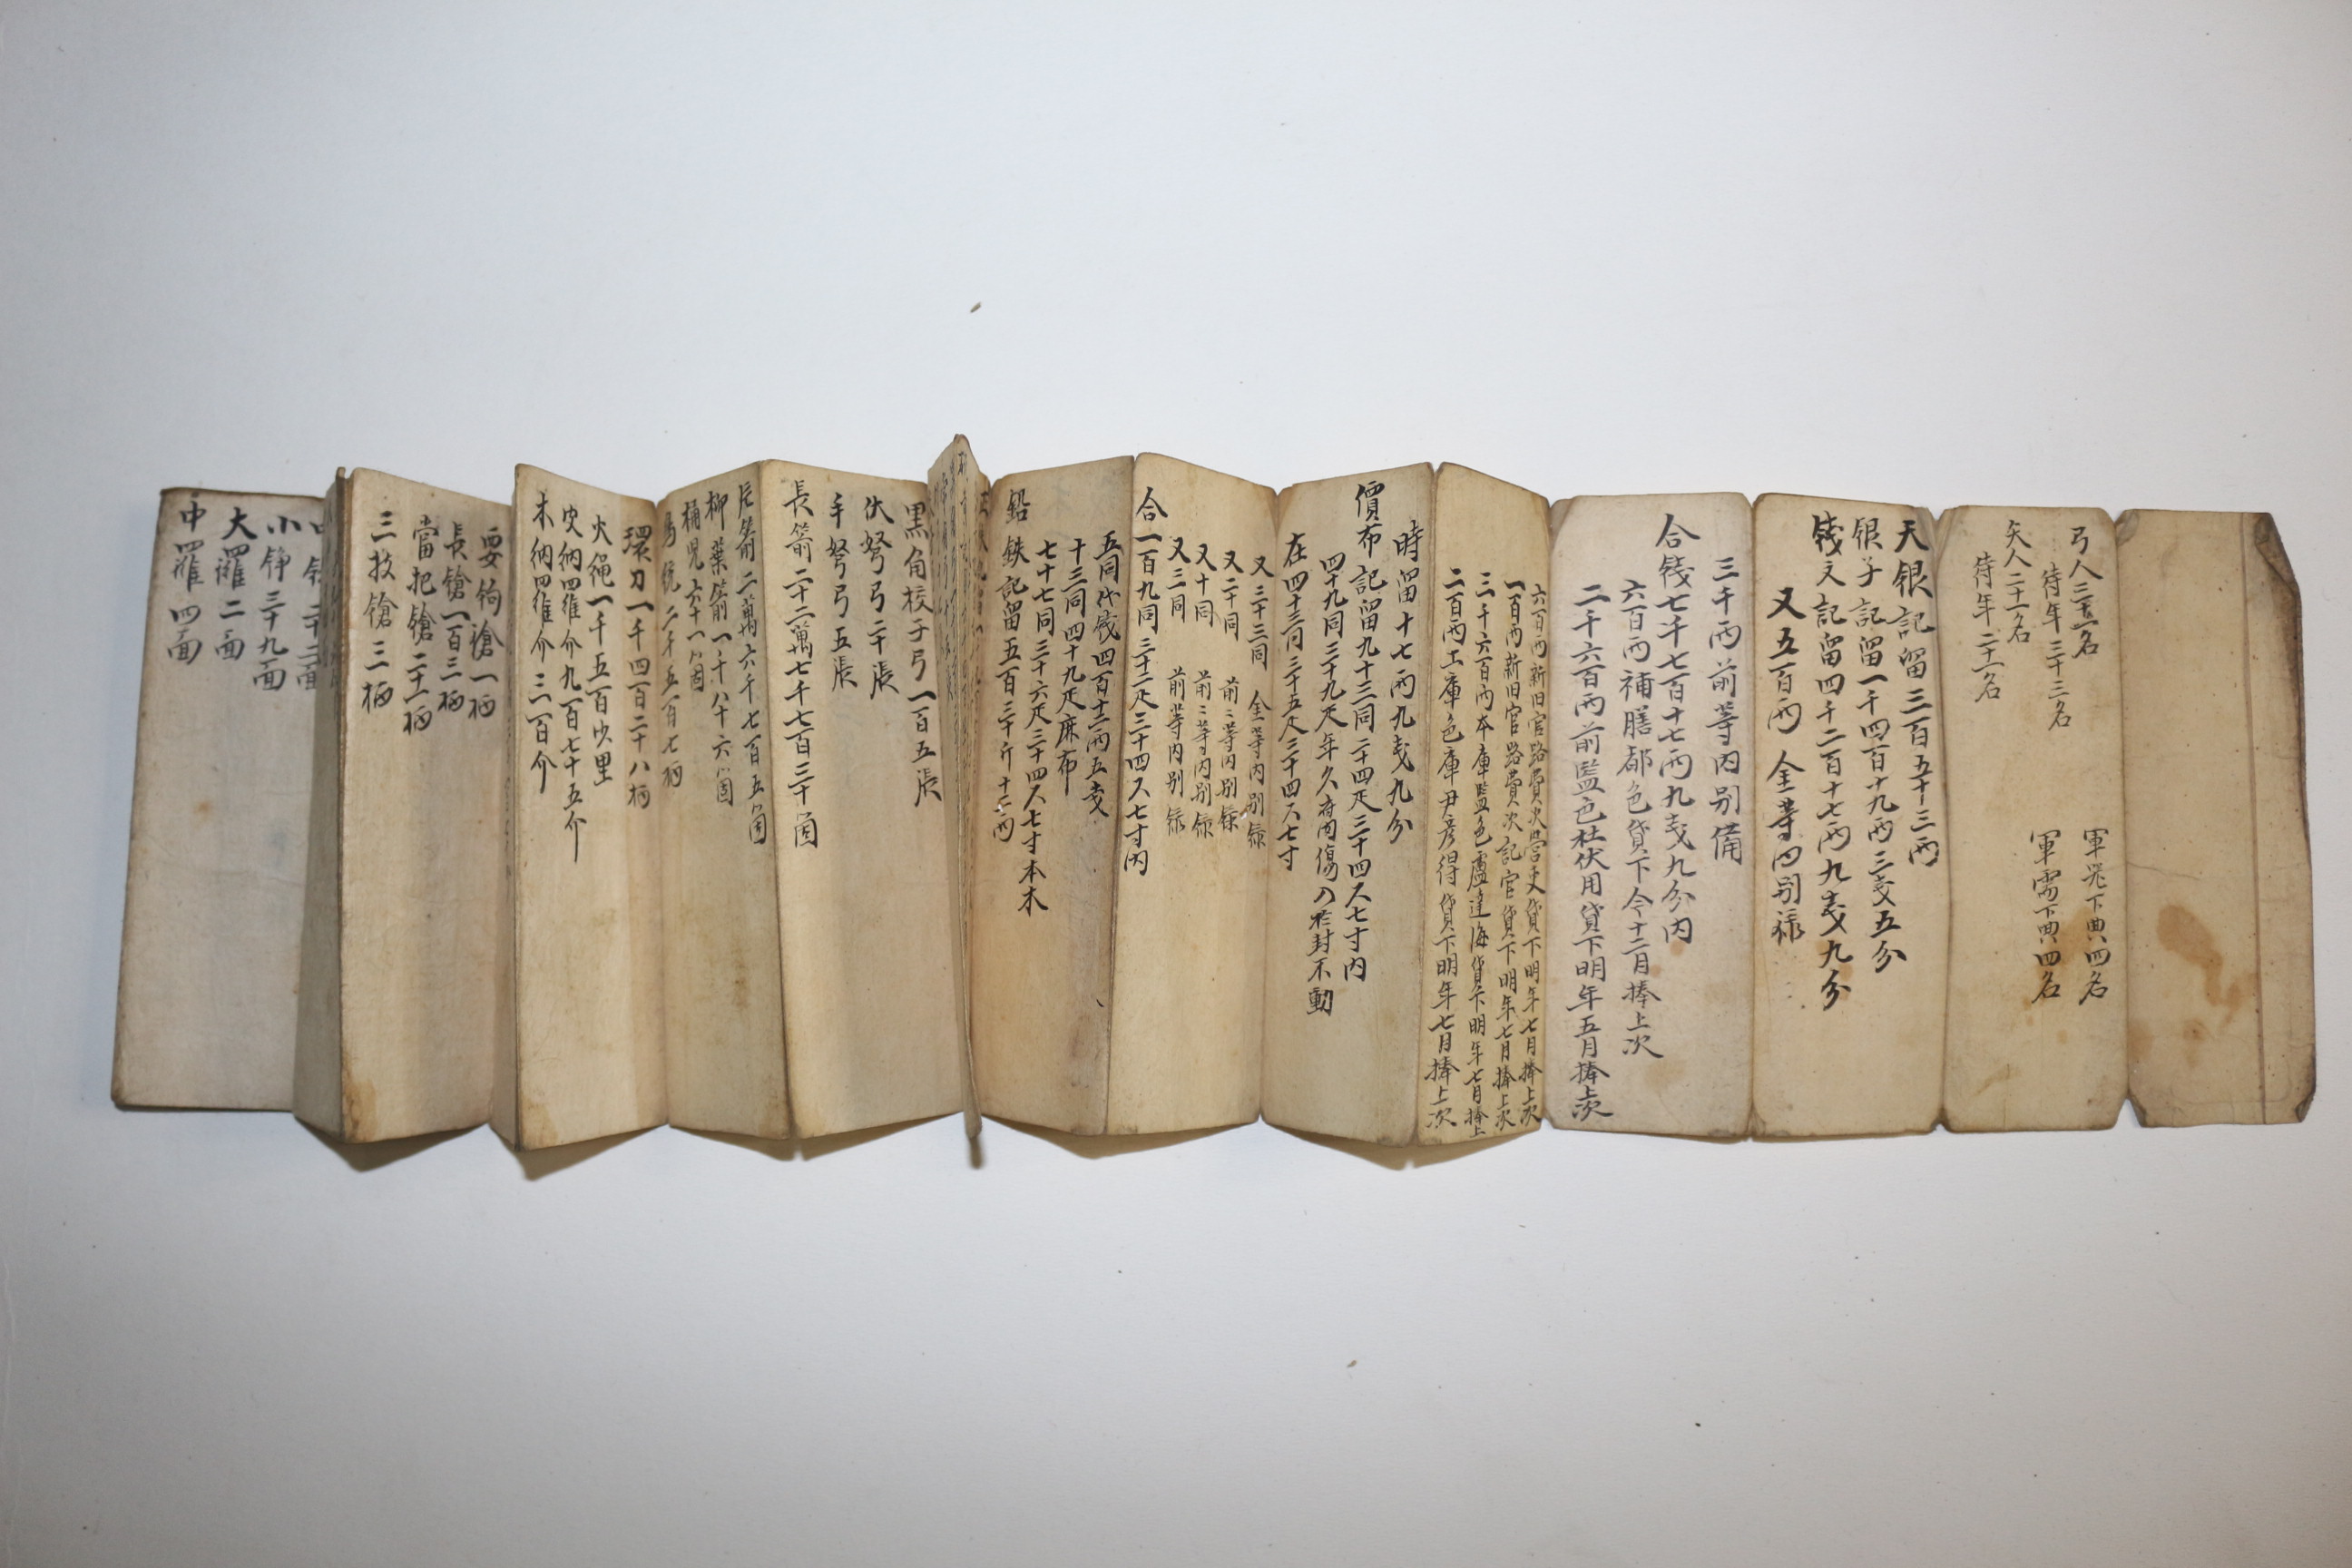 弓人三十一名
待年三十三名
矢人二十一名
待年二十一名
軍器下典四名
軍需下典四名
天银記留三百五十三两
银子記留一千四百十九两三戔五分
錢文記留四千二百十七两九戔九分
又五百两 仝等内別录
三千两前等内別備
合錢七千七百十七两九戔九分内
六百两補膳都色貸下今十二月捧上次
二千六百两前監色杜伏用貸下明年五月捧上次
六百两新旧官路費次営吏貸下明年七月捧上次
一百两新旧官路費次記官貸下明年七月捧上次
三千六百两本庫監色盧達海貸下明年七月捧上
二百两工庫色庫尹彦得貸下明年七月捧上次
時留十七两九戔九分
價布記留九十三同二十四疋三十四尺七寸内
四十九同三十九疋年久腐傷乃於封不動
在四十三同三十五疋三十四尺七寸
又三十三同 仝等内別录
又二十同 前〻等内別录
又十同 前〻等内別录
又三同 前等内別录
合一百九同三十二疋三十四尺七寸内
五同代錢四百十二两五戔
十三同四十九疋麻布
七十七同三十六疋三十四尺七寸本木
鉛鉄記留五百三十斤十二两
黒角校子弓一百五張
伏弩弓二十張
手弩弓五張
長箭二十二萬七千七百三十箇
片箭二萬六千七百五箇
柳葉箭一千八十六箇
桶兒六十一箇
鳥銃二千五百七柄
環刀一千四百二十八柄
火绳一千五百沙里
皮納四羅介九百七十五介
木納四羅介三百介
要钩鎗一柄
長鎗一百三柄
當把鎗二十一柄
三技鎗三柄
小铮三十九面
大鑼二面
中鑼四面